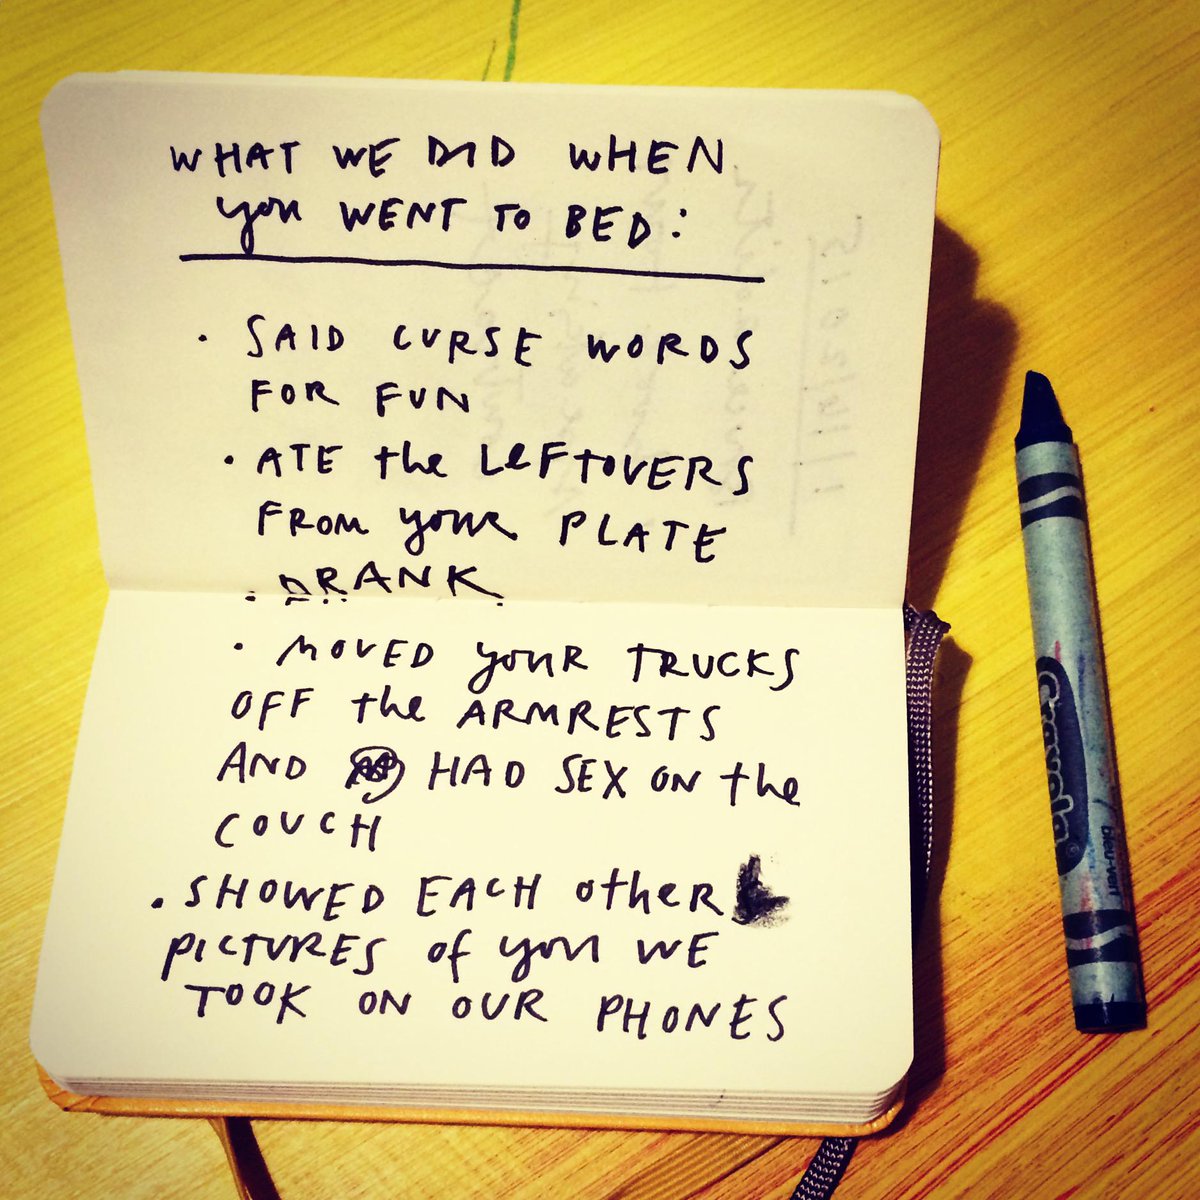 WHAT WE DID WHEN
you WENT TO BED:
· SAID CURSE WORDS
FOR FUN
· ATE the LEFTOVERS
FROM your PLATE
· DRANK
· MOVED your TRUCKS
OFF the ARMRESTS
AND HAD SEX ON the
COUCH
· SHOWED EACH other
PICTURES of you WE
TOOK ON OUR PHONES
Crayola
bleu-vert